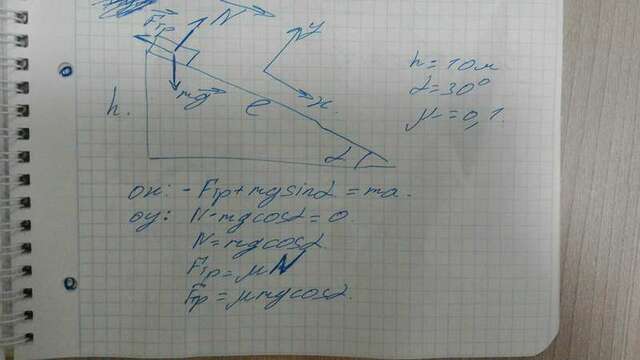 Fтр N y
mg
h. e x
α
h = 10м
α = 30°
μ = 0,1.
ox: - Fтр + mg sinα = ma.
oy: N - mg cosα = 0.
N = mg cosα
Fтр = μN
Fтр = μmg cosα.